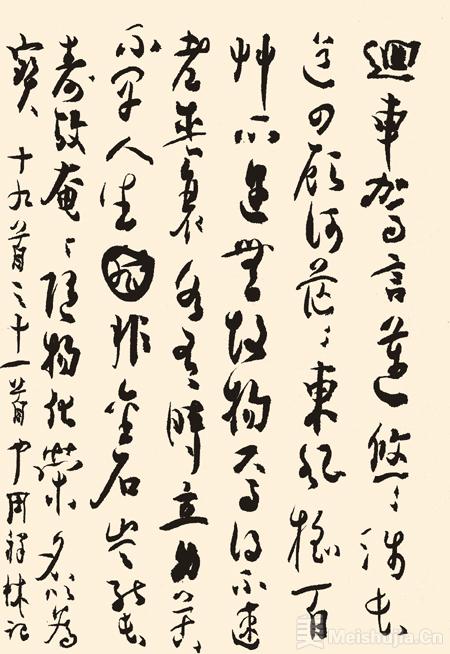 迴車駕言邁悠〻涉長
道四顧何茫〻東風搖百
艸所遇無故物焉得不速
老盛衰各有時立身苦
不早人生非金石豈能長
壽考奄〻隨物化榮名以為
寶 十九首之十一首 記
Meishujia.Cn